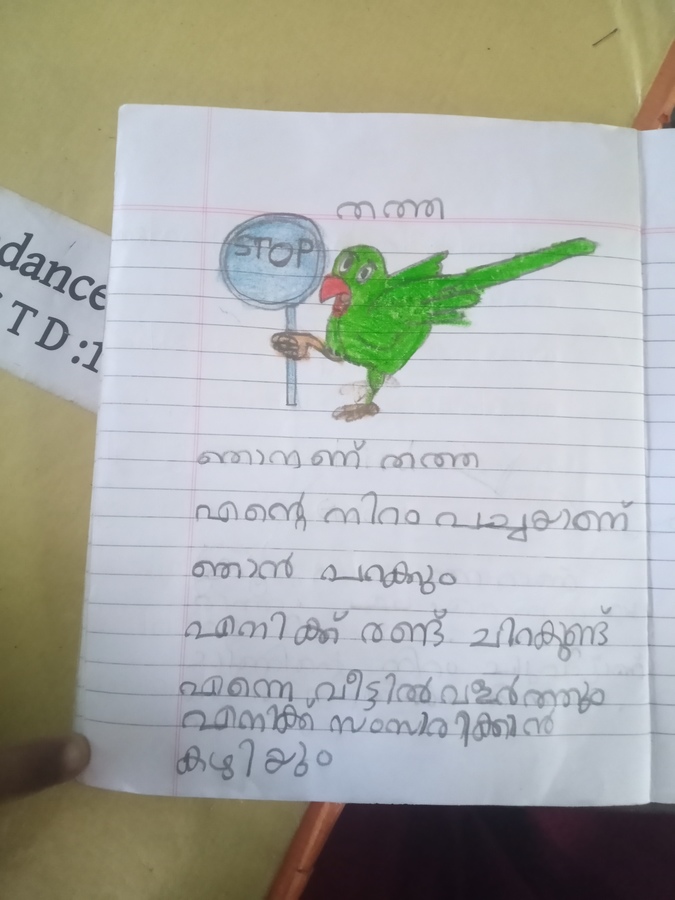 dance
T D :1
തത്ത
STOP
ഞാനണ് തത്ത
എന്റെ നിറം പച്ചയാണ്
ഞാൻ പറക്കും
എനിക്ക് രണ്ട് ചിറകുണ്ട്
എന്നെ വീട്ടിൽ വളർത്തും
എനിക്ക് സംസാരിക്കാൻ
കഴിയും